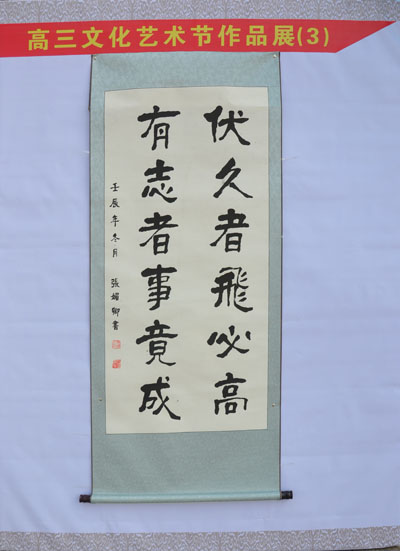 高三文化艺术节作品展(3)
伏久者飛必高
有志者事竟成
壬辰年冬月 張娟卿書